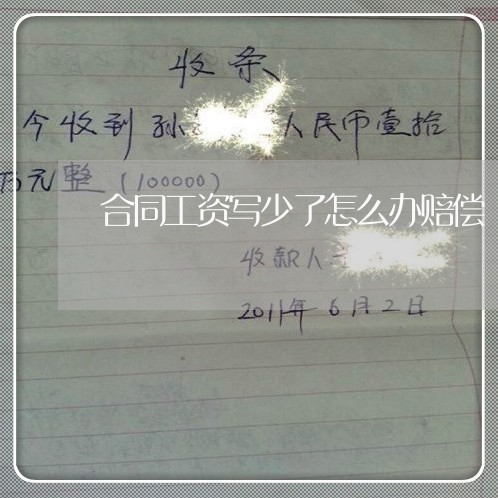 收条
今收到孙 人民币壹拾
万元整(100000)
合同工资写少了怎么办赔偿
收款人
2011年6月2日